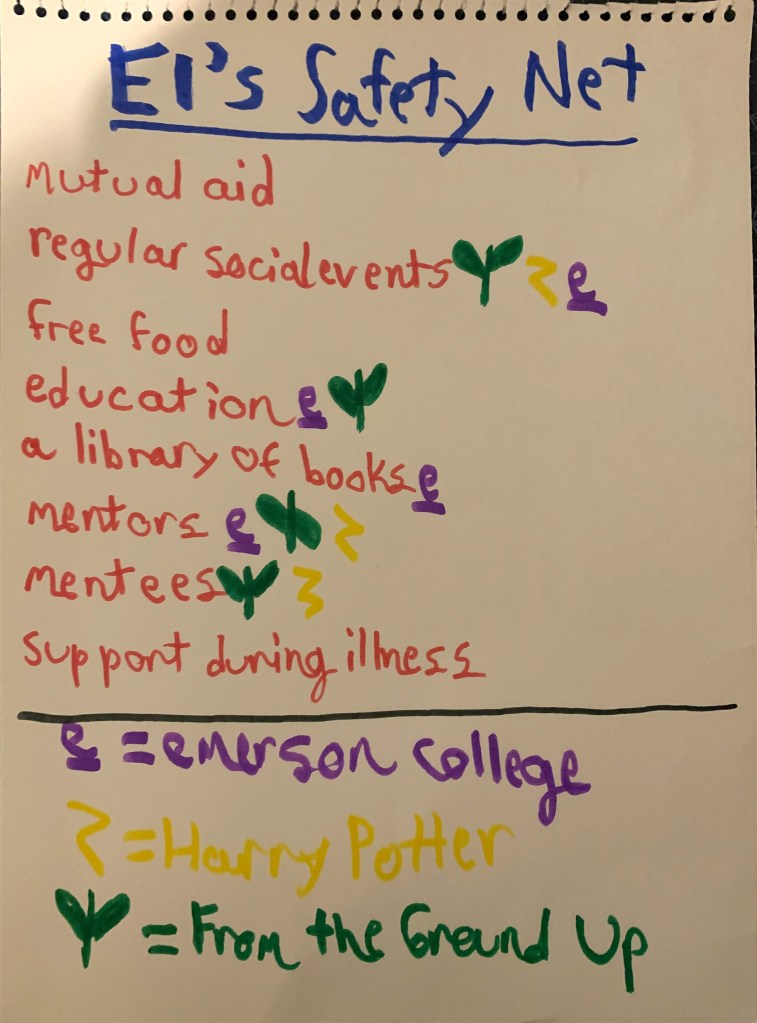 El's Safety Net
mutual aid
regular social events e
free food
education e
a library of books e
mentors e
mentees
support during illness
e = emerson college
= Harry Potter
= From the Ground Up